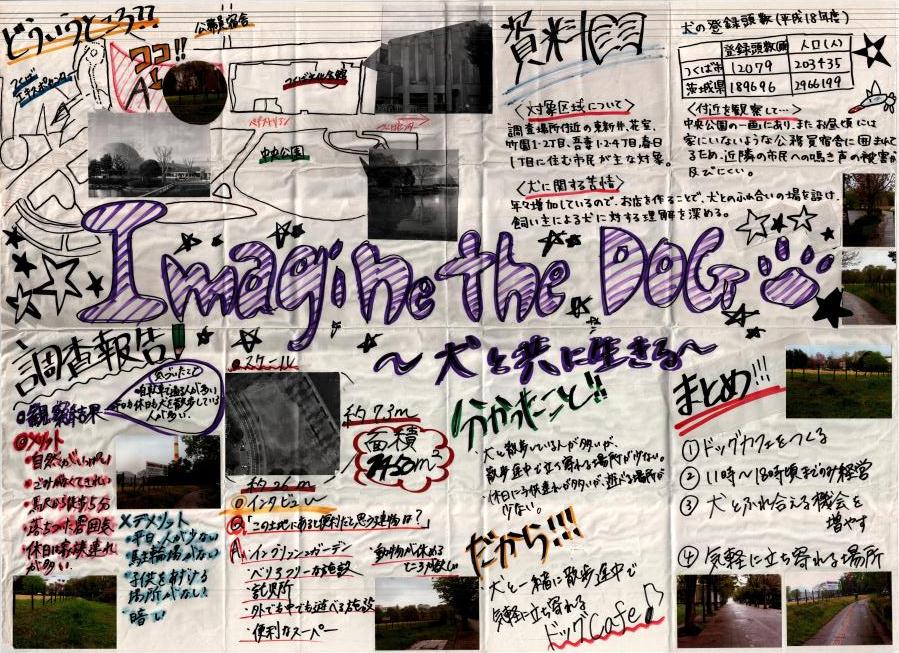 どういうところ??
公務員宿舎
ココ!!
つくばエキスポセンター
つくば文化会館
中央公園
資料
犬の登録頭数(平成18年度)
登録頭数(頭) 人口(人)
つくば市 12079 203435
茨城県 189696 2966199
〈対象区域について〉
調査場所付近の東新井、花室、
竹園1・2丁目、吾妻1・2・4丁目、春日
1丁目に住む市民が主な対象。
〈犬に関する苦情〉
年々増加しているので、お店を作ることで、犬とのふれ合いの場を設け、
飼い主による犬に対する理解を深める。
〈付近を観察して…〉
中央公園の一画にあり、またお昼頃には
家にいないような公務員宿舎に囲まれて
るため、近隣の市民への鳴き声の被害が
及びにくい。
Imagine the DOG
～犬と共に生きる～
調査報告
気づいたこと
観察結果
メリット
・自然がいっぱい
・ごみがなくてきれい
・駅から徒歩5分
・落ちついた雰囲気
・休日は家族連れ
が多い。
×デメリット
・平日、人が少ない
・駐輪場がない
・子供をあずける
場所がない
・暗い
スケール
約73m
約26m
面積
インタビュー
Q「この土地にあると便利だと思う建物は?」
A
・イングリッシュガーデン
・バリアフリーな施設
・託児所
・外でも中でも遊べる施設
・便利なスーパー
・動物が休める
ところが欲しい
分かったこと!!
・犬と散歩している人が多いが、
散歩途中で立ち寄れる場所が少ない。
・休日に子供連れが多いが、遊べる場所が
少ない。
だから!!!
・犬と一緒に散歩途中で
気軽に立ち寄れる
ドッグCafe♪
まとめ!!!
①ドッグカフェをつくる
②11時～18時頃までのみ経営
③犬とふれ合える機会を
増やす
④気軽に立ち寄れる場所